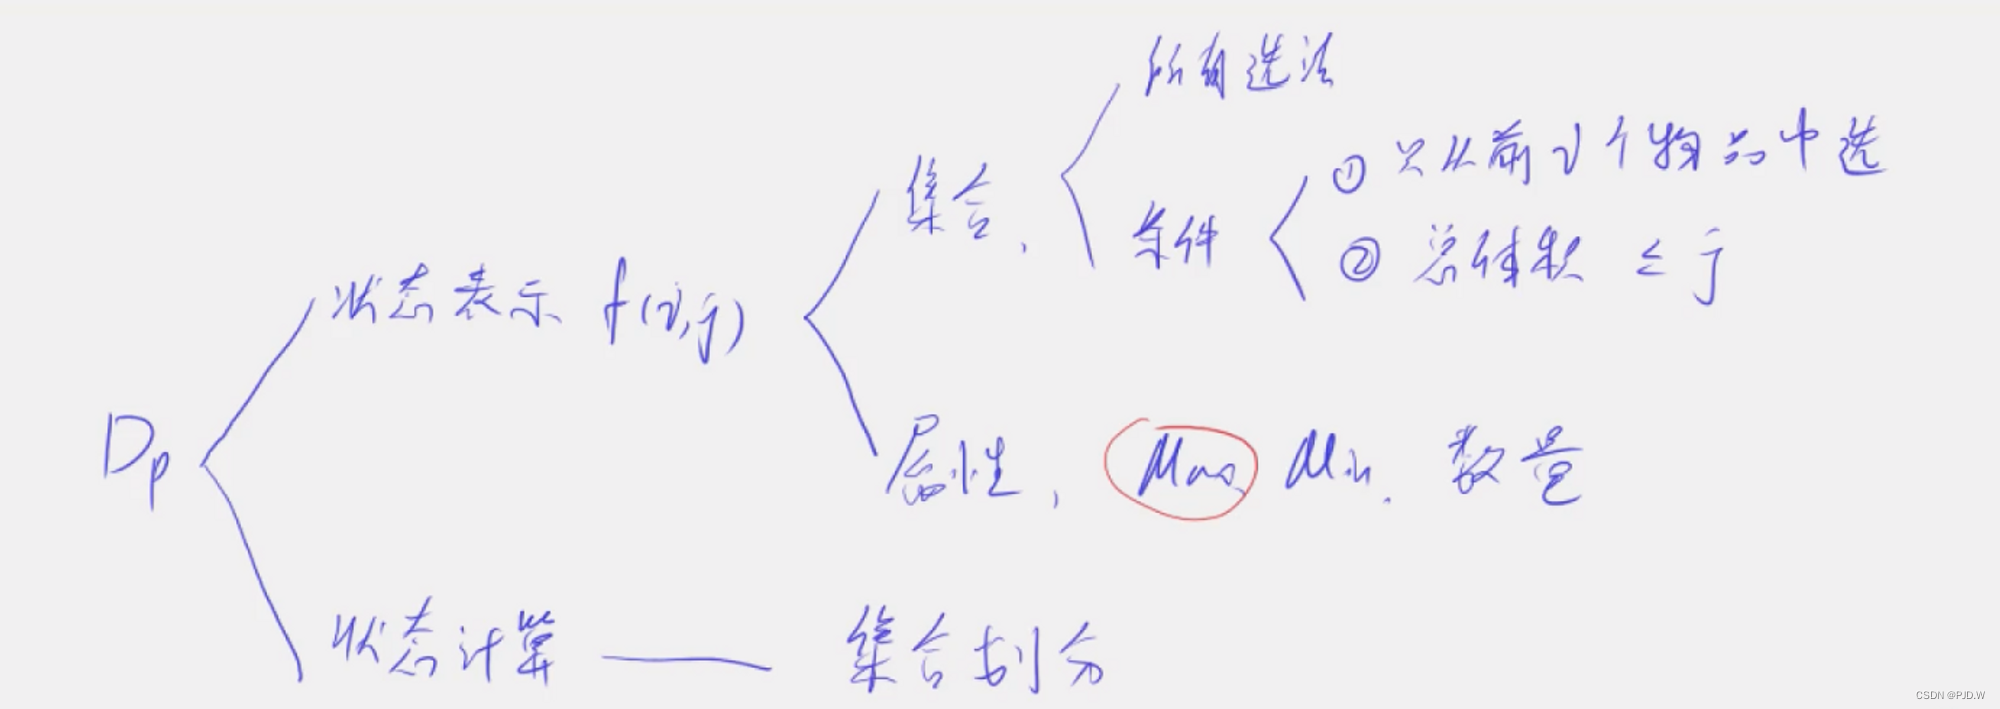 所有选法
① 只从前i个物品中选
集合,
条件
② 总体积 ≤ j
状态表示 f(i,j)
Dp
属性, Max, Min, 数量
状态计算 —— 集合划分
CSDN @PJD.W